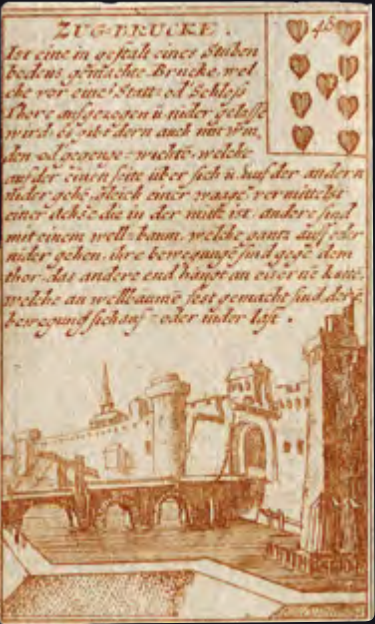 ZUG-BRUCKE.
48
Ist eine in gestalt eines Stuben
bodens gemachte Brucke, wel
che vor eines Statt- od Schloß
Thore aufgezogen ū nider gelasse
wird; es gibt dern auch mit win,
den od gegenge-wichte, welche
auf der einen seite über sich ū auf der andern
nider gehē, gleich einer waage vermittelst
einer achse die in der mitte ist, andere sind
mit einem well-baum, welche gantz auff oder
nider gehen, ihre bewegunge sind gegē dem
thor, das andere end hangt an eisernē kettē,
welche an wellbaumē fest gemacht sind, derē
bewegung sich auf- oder nider laßt.